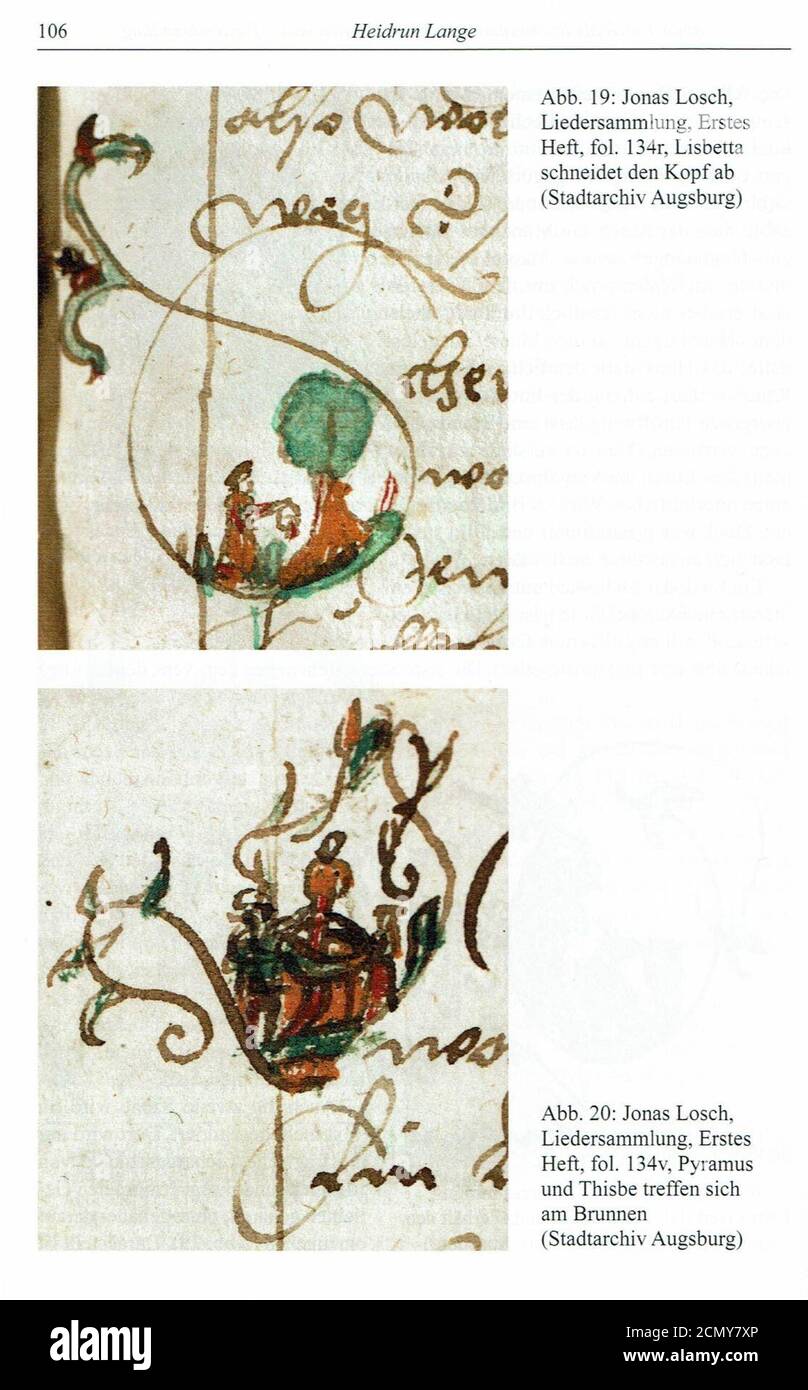 106 Heidrun Lange
Abb. 19: Jonas Losch,
Liedersammlung, Erstes
Heft, fol. 134r, Lisbetta
schneidet den Kopf ab
(Stadtarchiv Augsburg)
also
weg
wo
wo
Abb. 20: Jonas Losch,
Liedersammlung, Erstes
Heft, fol. 134v, Pyramus
und Thisbe treffen sich
am Brunnen
(Stadtarchiv Augsburg)
alamy
Image ID: 2CMY7XP
www.alamy.com